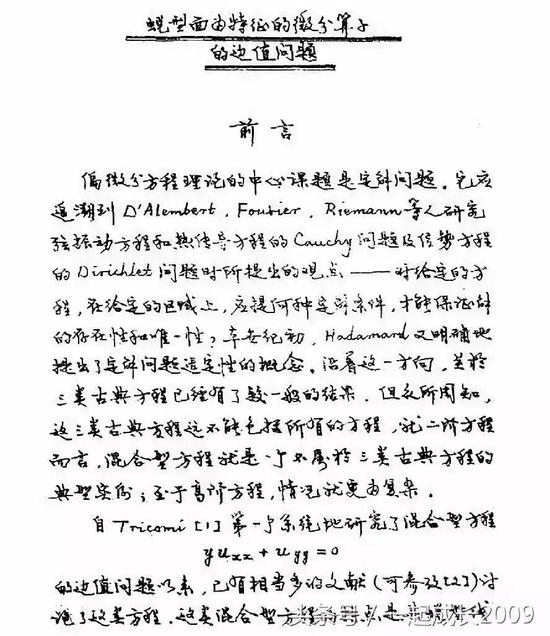 蜕型面由特征的微分算子
的边值问题
前言
偏微分方程理论的中心课题是定解问题。它应
追溯到 D'Alembert, Fourier, Riemann等人研究
弦振动方程和热传导方程的Cauchy问题及位势方程
的Dirichlet问题时所提出的观点——对给定的方
程,在给定的区域上,应提何种定解条件,才能保证解
的存在性和唯一性?本世纪初,Hadamard又明确地
提出了定解问题适定性的概念。沿着这一方向,关于
三类古典方程已经有了较一般的结果。但众所周知,
这三类古典方程远不能包括所有的方程,就二阶方程
而言,混合型方程就是一个不属于三类古典方程的
典型实例;至于高阶方程,情况就更为复杂。
自Tricomi[1]第一个系统地研究了混合型方程
yu_xx + u_yy = 0
的边值问题以来,已有相当多的文献(可参考[2])讨
论了这类方程。这类混合型方程的特点是
头条号/一起成长2009